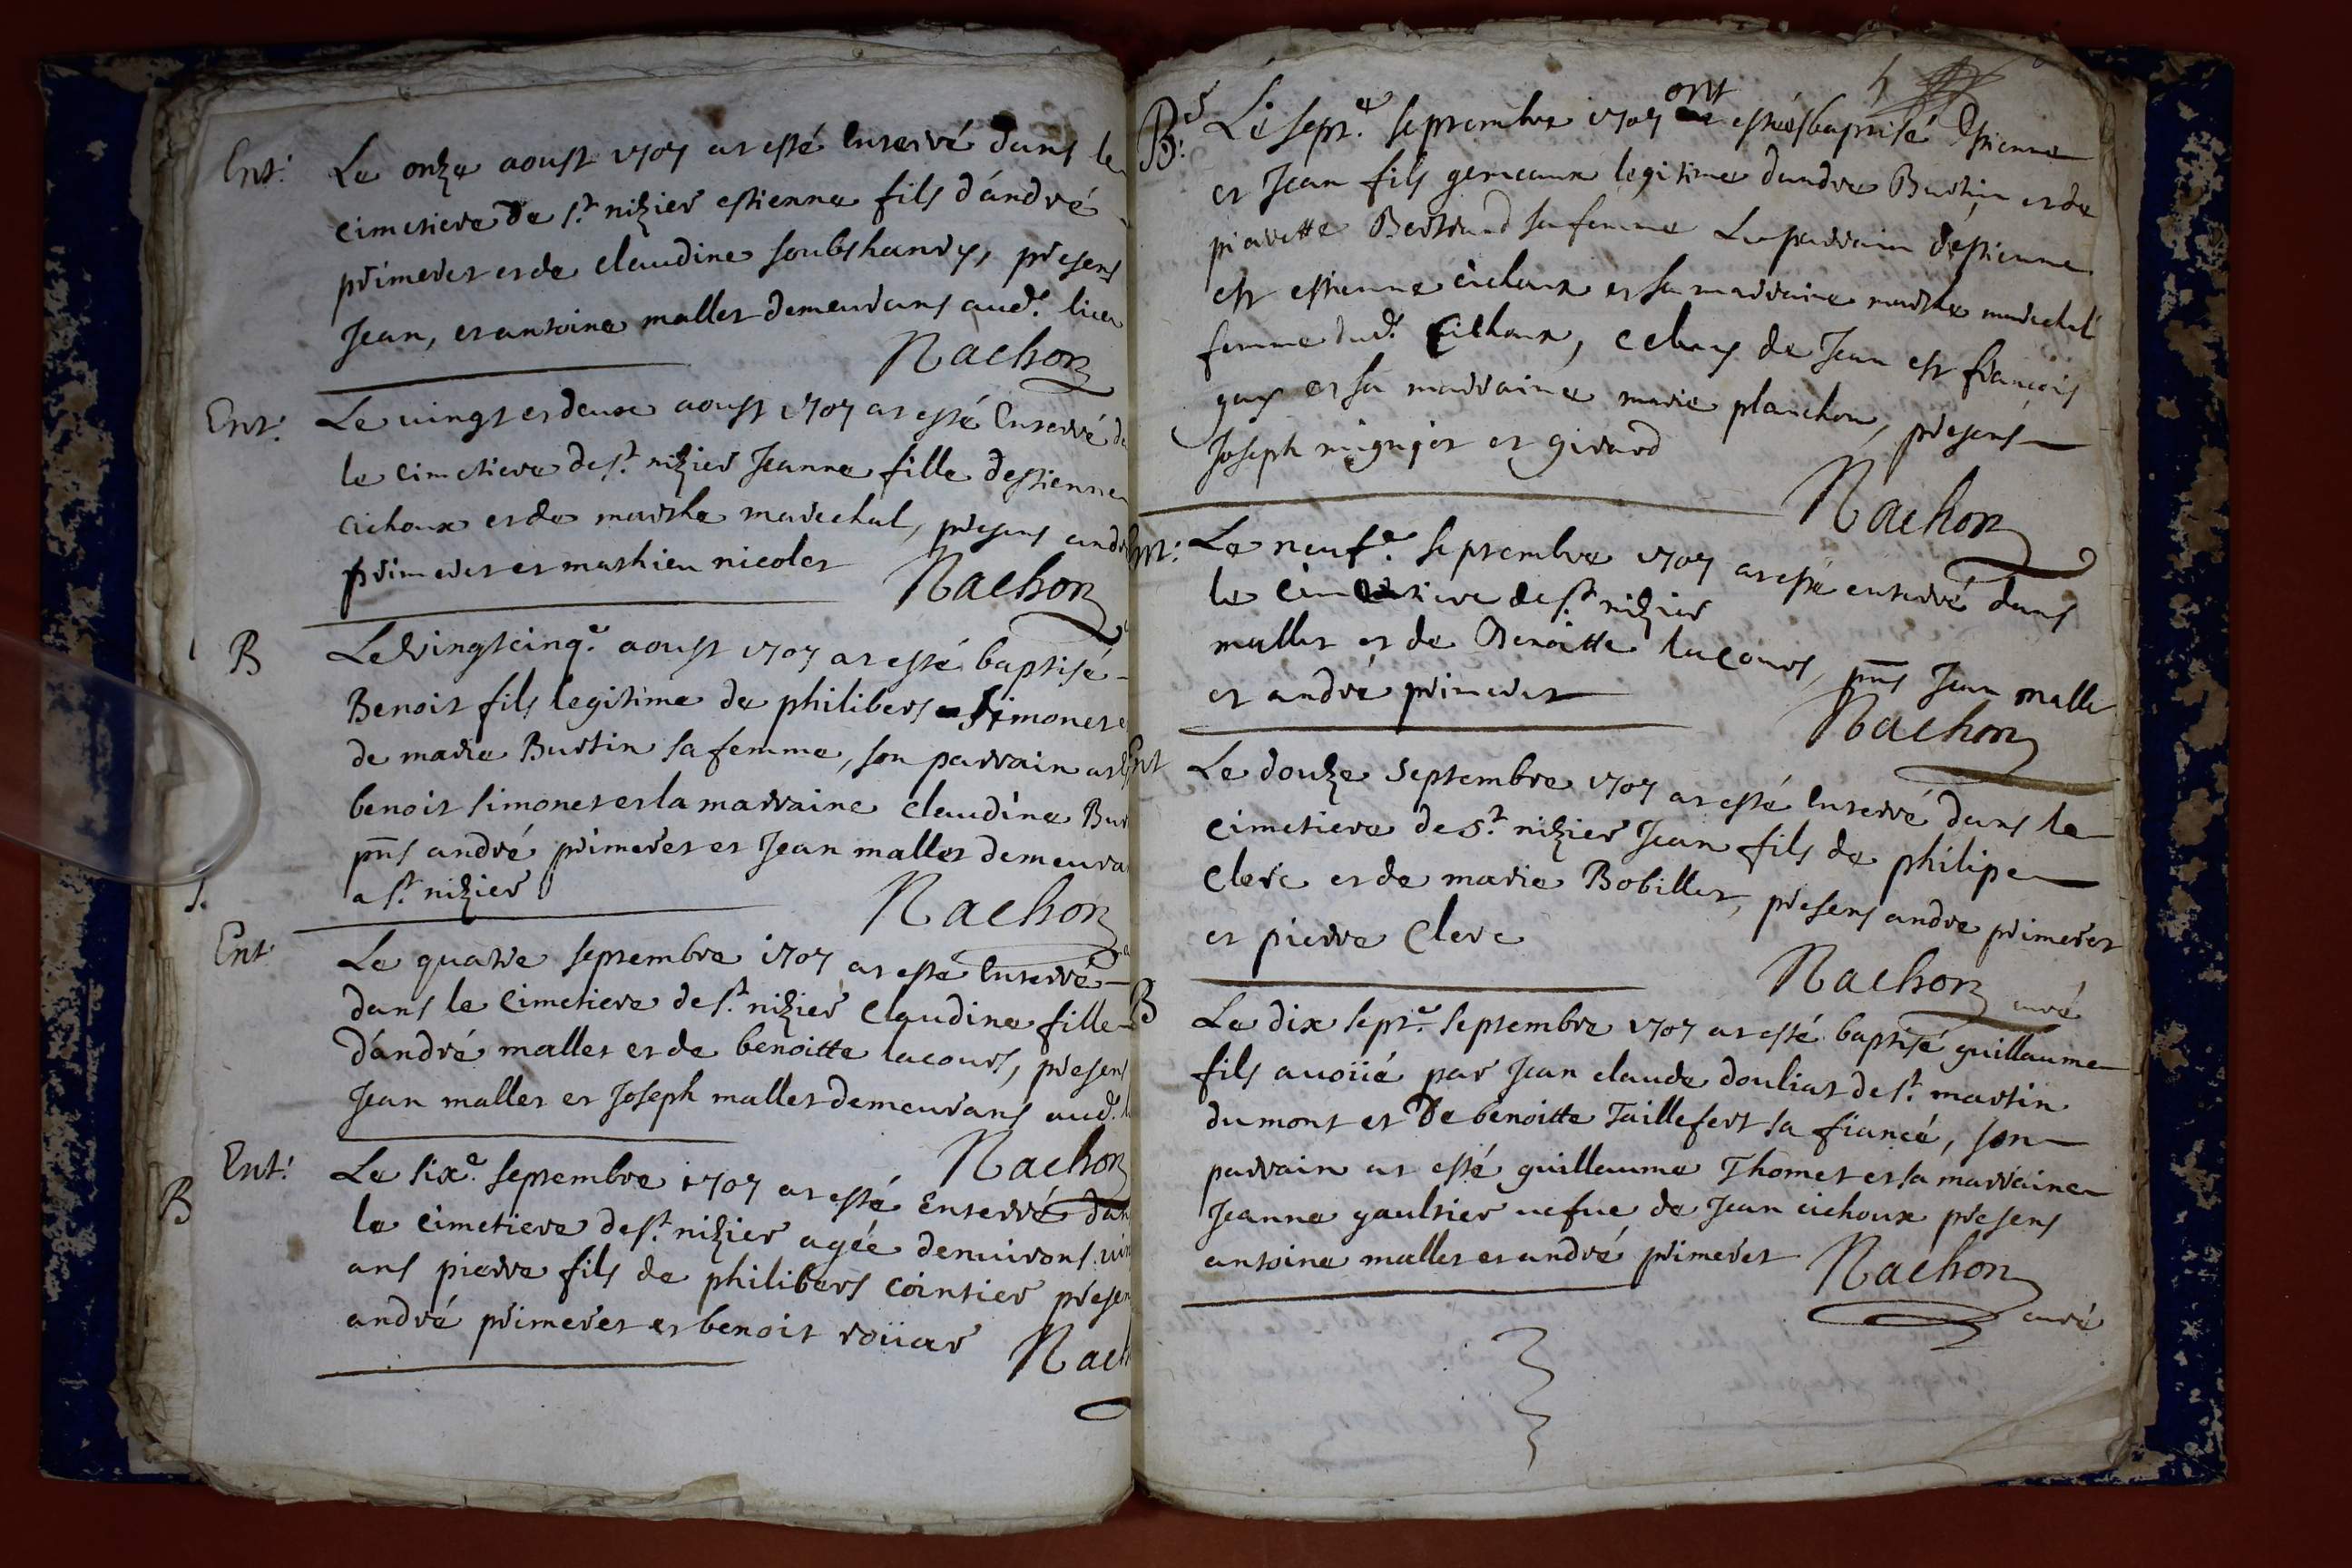 Ent: Le onze aoust 1707 at esté Enterré dans le
cimetiere de st nizier estienne fils d'andré
primeret et de claudine soubshanry, presens
Jean, et antoine mallet demeurans aud. lieu
Nachon
Ent: Le vingt et deux aoust 1707 at esté Enterré
le cimetiere de st nizier Jeanne fille d'estienne
cichoux et de marthe marechal, presens
primeret et mathieu nicolet
Nachon
B Le vingt cinq.e aoust 1707 at esté baptisé
Benoit fils legitime de philibert simonet
de marie Burtin sa femme, son parrain
benoit simonet et la marraine claudine
pns andré primeret et Jean mallet
a st nizier
Nachon
Ent Le quatre septembre 1707 at esté Enterré
dans le cimetiere de st nizier claudine fille
d'andré mallet et de benoitte lacourt, presens
Jean mallet et Joseph mallet demeurans aud.
Nachon
Ent: Le six.e septembre 1707 at esté Enterré
B
le cimetiere de st nizier agée denuirons
ans pierre fils de philibert cointier
andré primeret et benoit roüiar
Nach
5
B.s Le sept.e septembre 1707 ont estées baptisé Estienne
et Jean fils gemeaux legitime dandre Burtin et de
pierrette Bertrand sa femme Le parrain destienne
est estienne cichoux et sa marraine marthe marechal
femme dud. cichoux, celuy de Jean est françois
guy et sa marraine marie planchon, presens
Joseph et girard
Nachon
Ent: Le neuf.e septembre 1707 at esté enterré dans
le cimetiere de st nizier
mallet et de Benoitte lacourt, pns Jean malle
et andré primeret
Nachon
Ent Le douze septembre 1707 at esté Enterré dans le
cimetiere de st nizier Jean fils de philipe
Clerc et de marie Bobillet, presens andre primeret
et pierre Clerc
Nachon curé
B Le dix sept.e septembre 1707 at esté baptisé guillaume
fils auoüé par Jean claude douliat de st martin
du mont et de benoitte Taillefert sa fiancé, son
parrain at esté guillaume Thomet et sa marraine
Jeanne gaultier uefue de Jean cichoux presens
antoine mallet et andré primeret
Nachon
curé